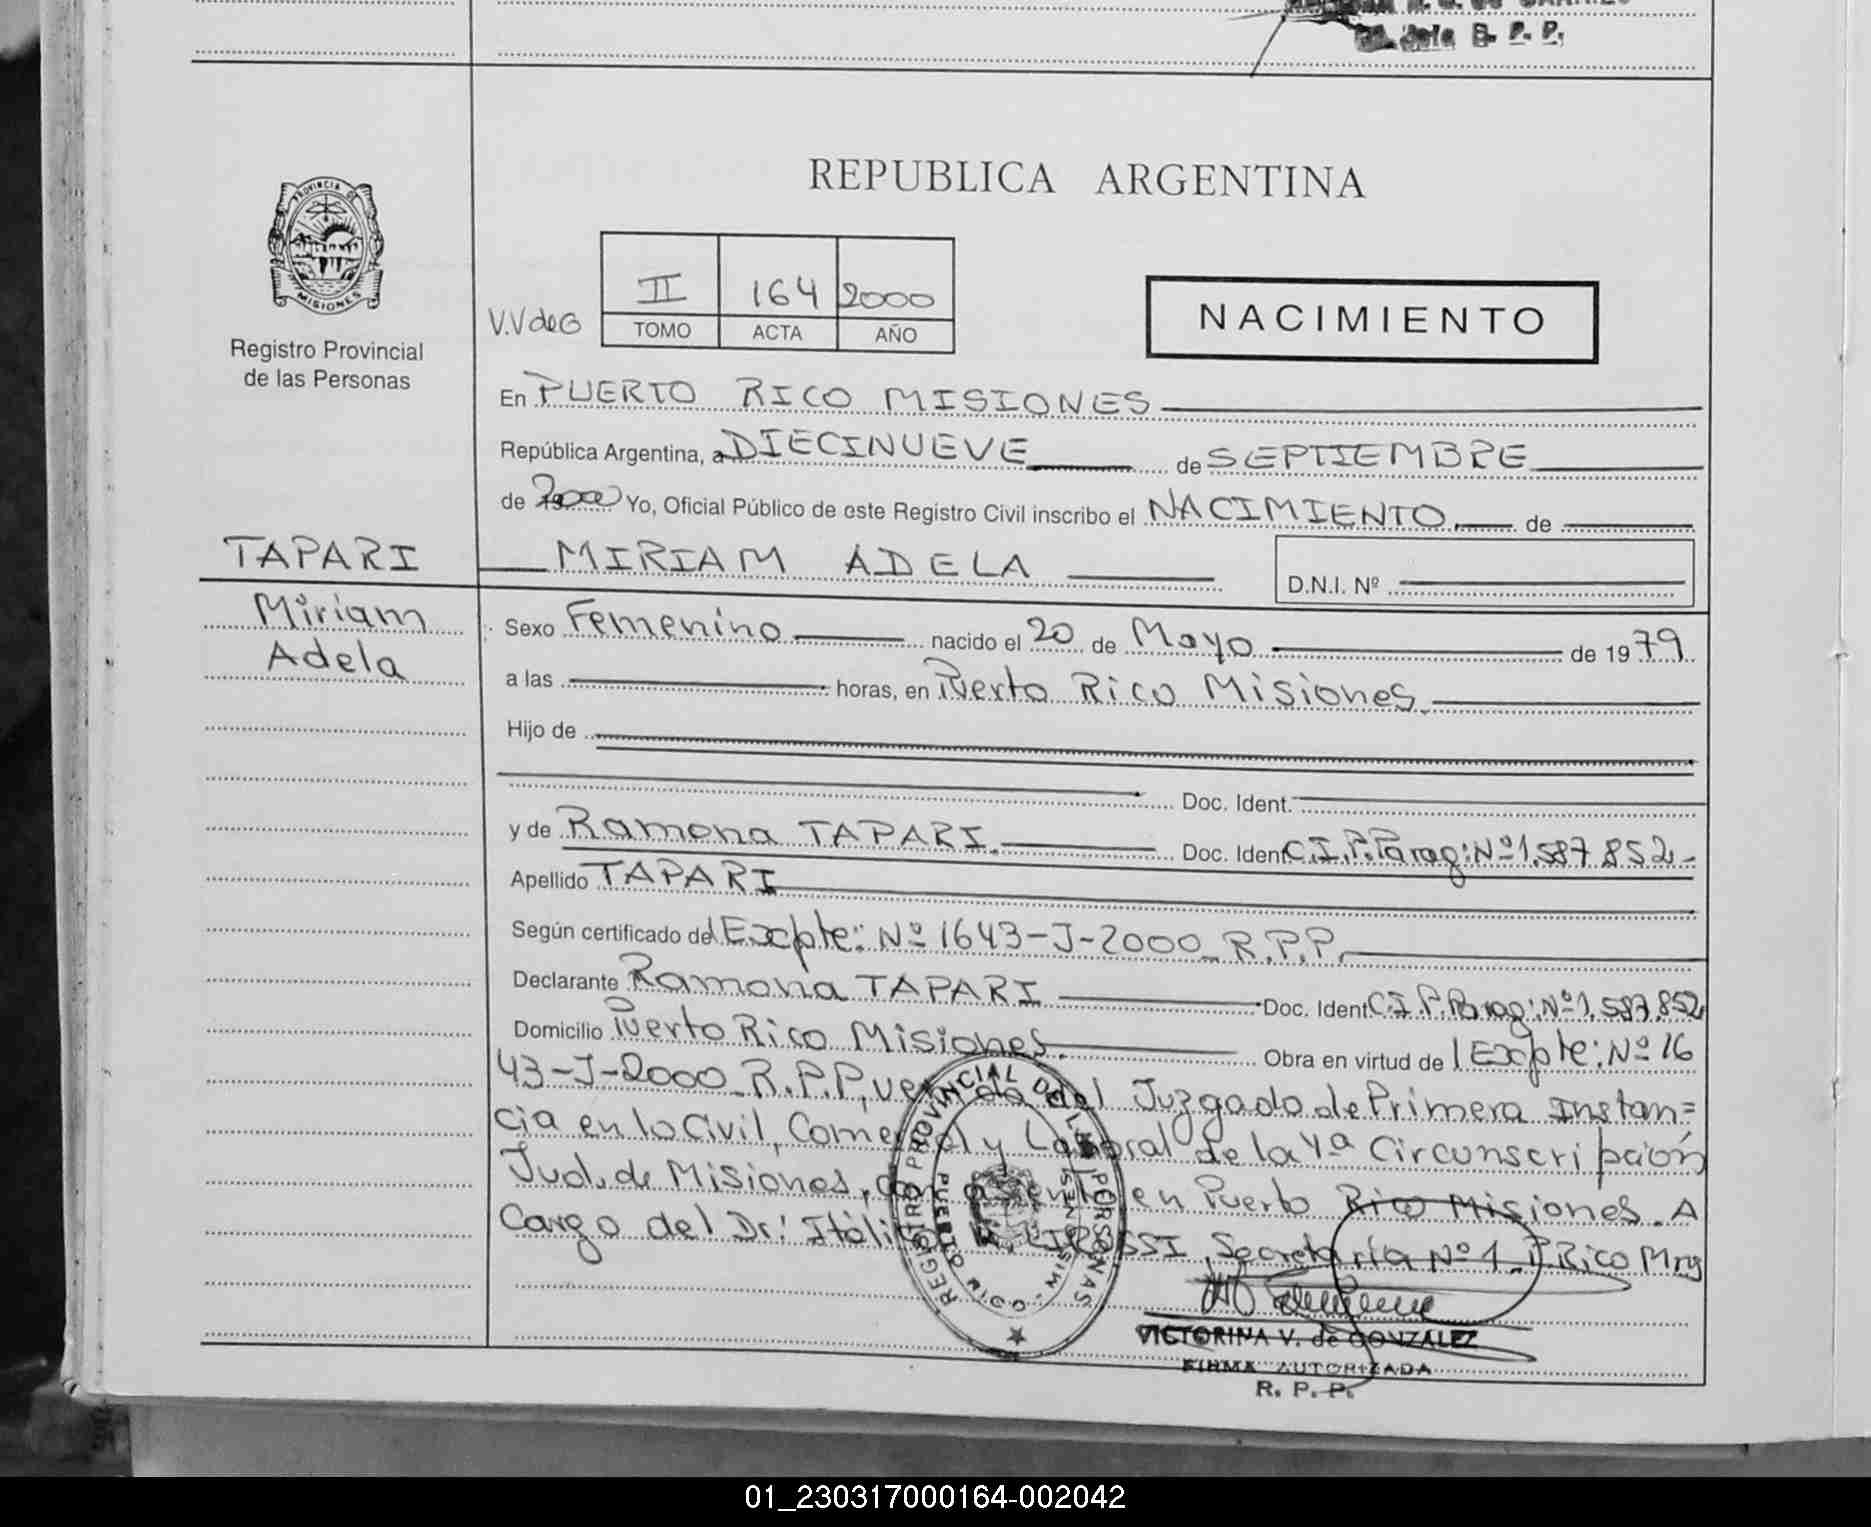 Jefe R. P. P.
PROVINCIA DE
MISIONES
Registro Provincial
de las Personas
REPUBLICA ARGENTINA
V.V de G
II 164 2000
TOMO ACTA AÑO
NACIMIENTO
En PUERTO RICO MISIONES
República Argentina, a DIECINUEVE de SEPTIEMBRE
de 2000 Yo, Oficial Público de este Registro Civil inscribo el NACIMIENTO de
TAPARI MIRIAM ADELA D.N.I. Nº
Miriam
Adela
Sexo Femenino nacido el 20 de Mayo de 1979
a las horas, en Puerto Rico Misiones
Hijo de
Doc. Ident.
y de Ramona TAPARI. Doc. Ident C.I.P.Parag: Nº 1.587.852-
Apellido TAPARI
Según certificado del Expte: Nº 1643-J-2000 R.P.P.
Declarante Ramona TAPARI Doc. Ident C.I.P.Parag: Nº 1.587.852
Domicilio Puerto Rico Misiones. Obra en virtud del Expte: Nº 16
43-J-2000 R.P.P, del Juzgado de Primera Instan=
cia en lo Civil, Comercial y Laboral de la 4ª Circunscripción
Jud. de Misiones, con asento en Puerto Rico Misiones. A
Cargo del Dr: Itálico SSI, Secretaría Nº 1 P.Rico Mns
REGISTRO PROVINCIAL DE LAS PERSONAS
PUERTO RICO - MISIONES
VICTORINA V. de GONZALEZ
FIRMA AUTORIZADA
R. P. P.
01_230317000164-002042